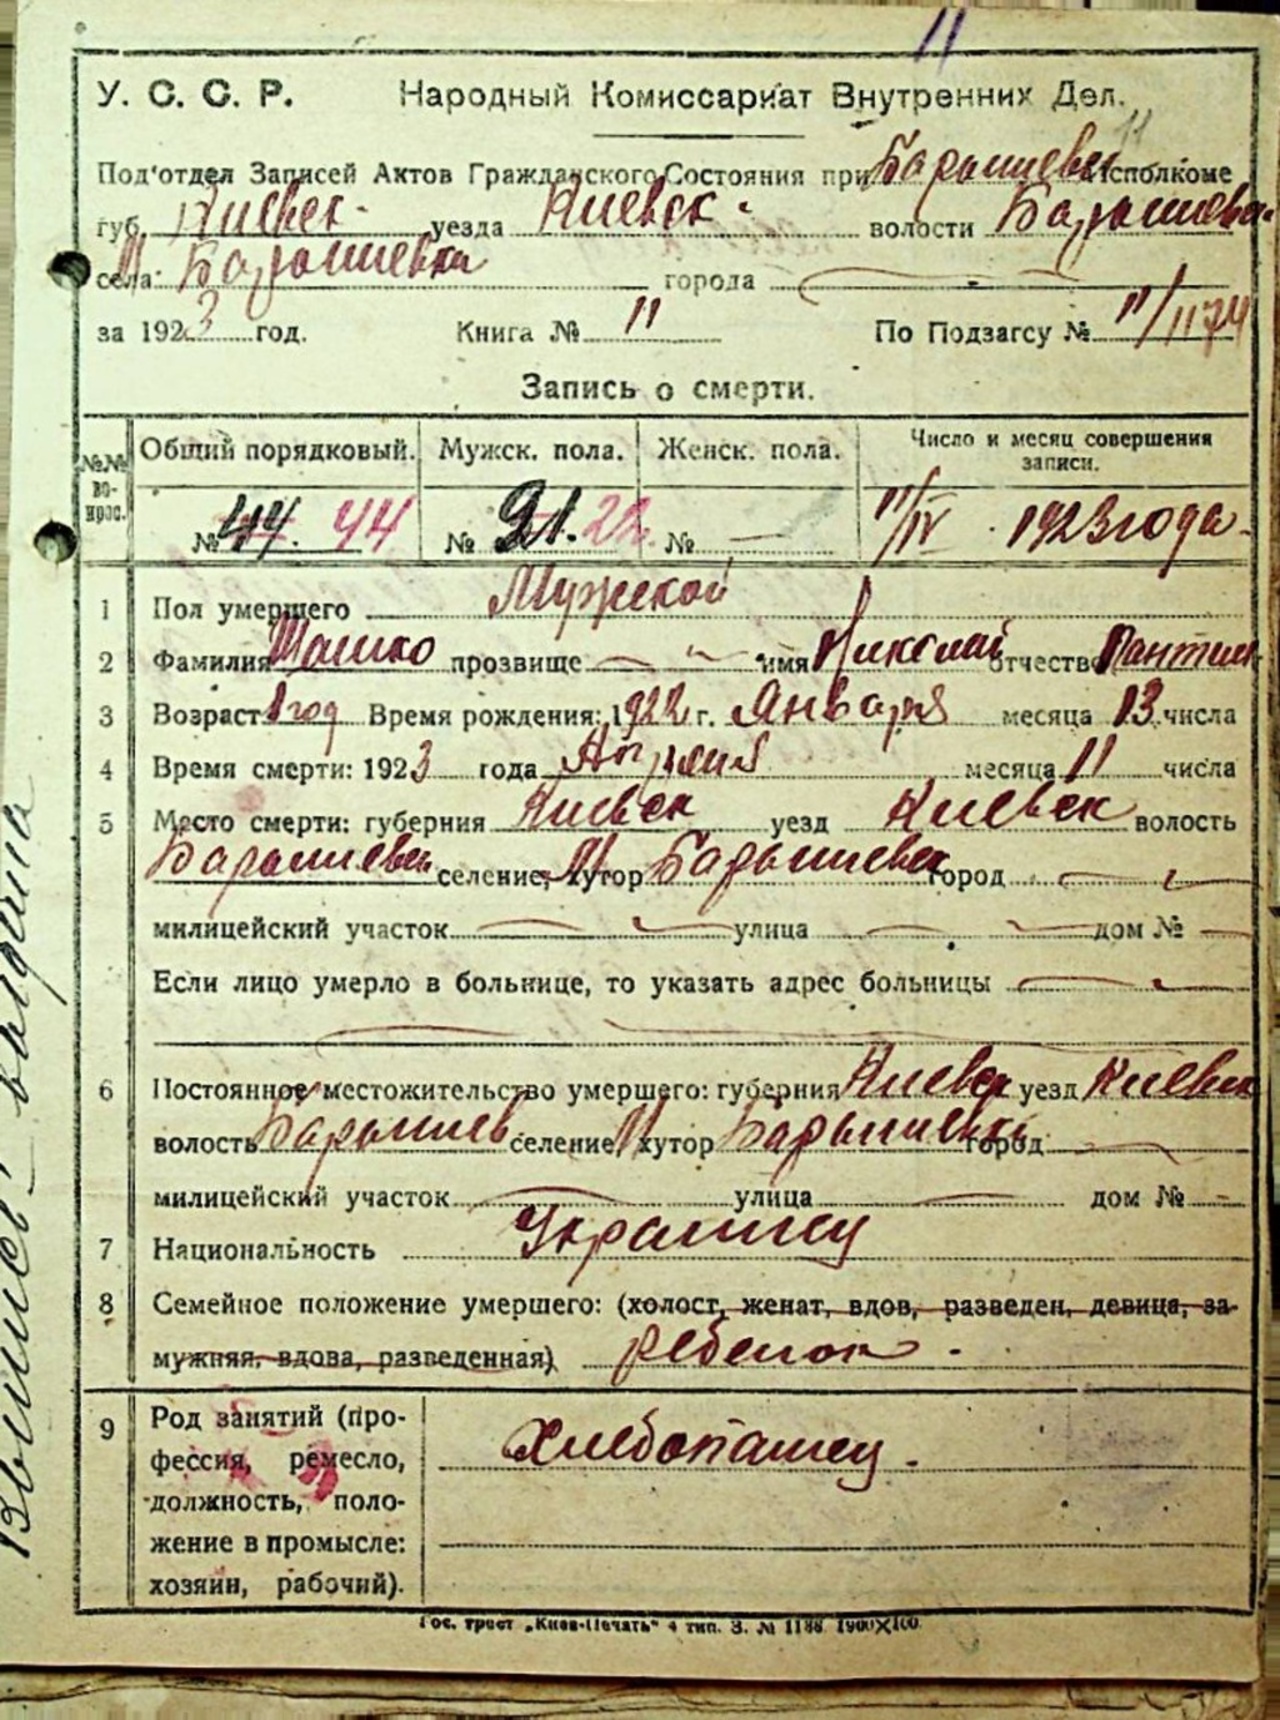 11
У. С. С. Р. Народный Комиссариат Внутренних Дел.
11
Под'отдел Записей Актов Гражданского Состояния при Барышевск Исполкоме
губ. Киевск. уезда Киевск. волости Барышевск.
села М. Барышевка города
за 1923 год. Книга № 11 По Подзагсу № 11/1174
Запись о смерти.
№№ вопрос. Общий порядковый. Мужск. пола. Женск. пола. Число и месяц совершения записи.
№ 44. 44 № 21. 22. № — 11/IV 1923 года
1 Пол умершего Мужской
2 Фамилия прозвище — имя Николай отчество
3 Возраст 1 год Время рождения: 1922 г. Января месяца 13 числа
4 Время смерти: 1923 года Апреля месяца 11 числа
5 Место смерти: губерния Киевск уезд Киевск волость
Барышевск селение, М. хутор Барышевка город
милицейский участок улица дом №
Если лицо умерло в больнице, то указать адрес больницы
6 Постоянное местожительство умершего: губерния Киевск уезд Киевск
волость Барышев. селение М хутор Барышевка город
милицейский участок улица дом №
7 Национальность Украинец
8 Семейное положение умершего: (холост, женат, вдов, разведен, девица, за-
мужняя, вдова, разведенная) ребенок.
9 Род занятий (про-
фессия, ремесло,
должность, поло-
жение в промысле:
хозяин, рабочий).
Хлебопашец.
Гос. трест „Киев-Печать" 4 тип. З. № 1188 1900×100